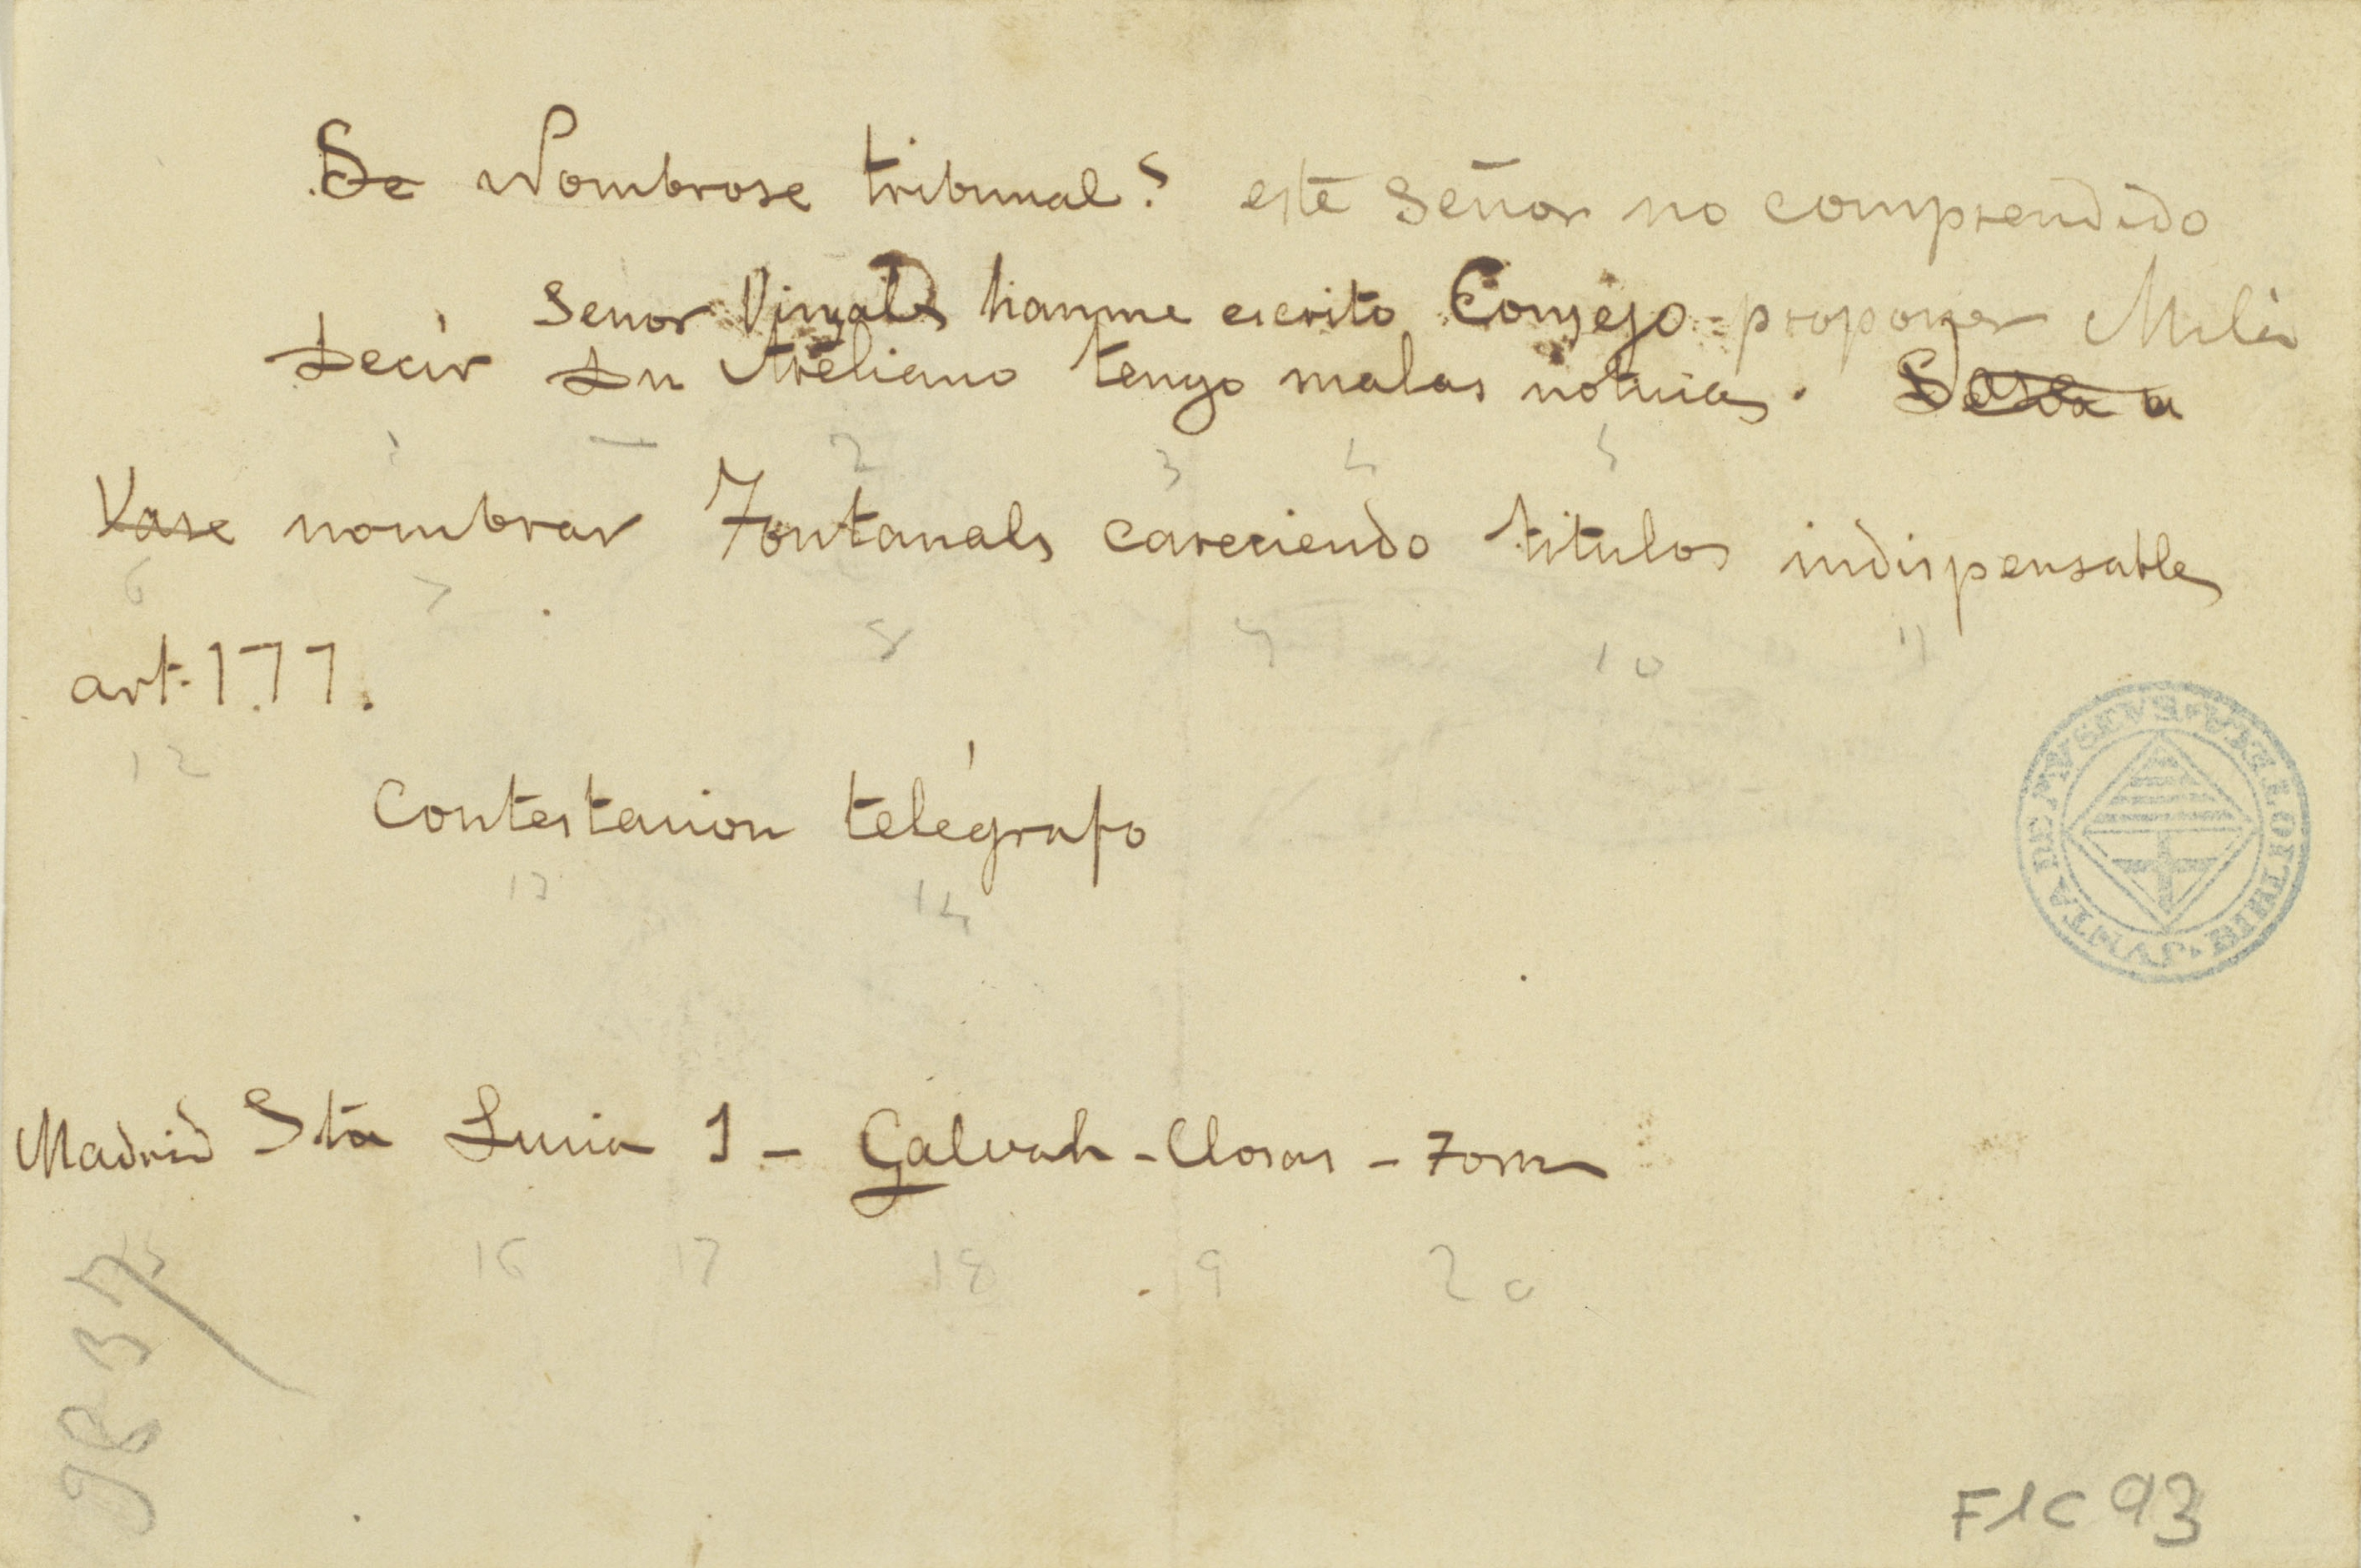 Se Nombrose tribunal? este señor no comprendido
Señor Vinyals hanme escrito Consejo proponer Milà
Decir Du Ateliano tengo malas noticias.
1 2 3 4 5
Vase nombrar Fontanals careciendo titulos indispensables
6 7 8 9 10 11
art. 177.
12
Contestacion telégrafo
13 14
Madrid Sta Lucia 1 - Galvah - Closas - Form
15 16 17 18 19 20
9837
F1C 93
JVNTA DE MVSEVS · BIBLIOTECA